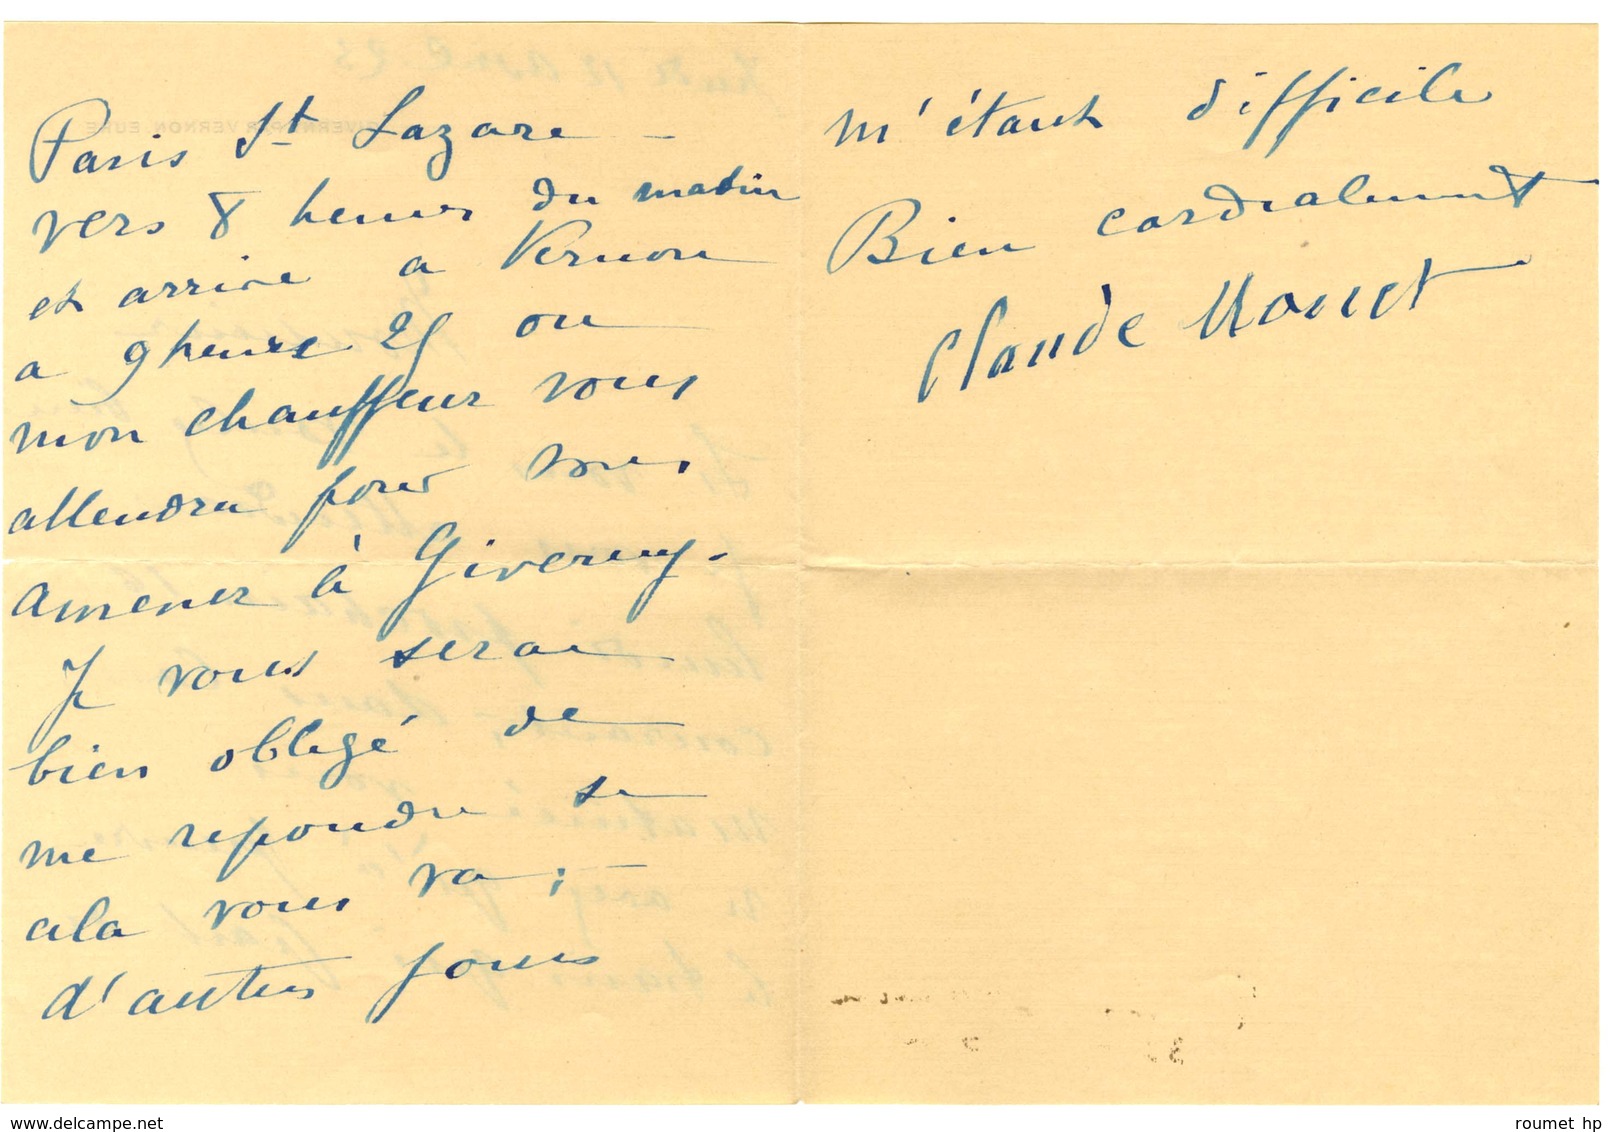 Paris St Lazare -
vers 8 heures du matin
et arrive a Vernon
a 9 heures 25 ou
mon chauffeur vous
attendra pour vous
amener à Giverny.
Je vous serai
bien obligé de
me repondre si
cela vous va ; -
d'autres jours
m'étant difficile
Bien cordialement
Claude Monet
www.delcampe.net
roumet hp